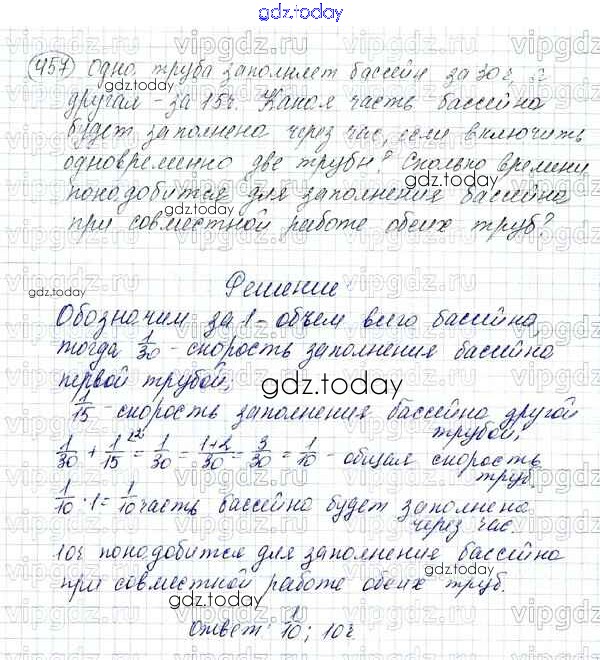 gdz.today
457 Одна труба заполняет бассейн за 30 г, а
другая - за 15г. Какая часть бассейна
будет заполнена через час, если включить
одновременно две трубы? Сколько времени
понадобится для заполнения бассейна
при совместной работе обеих труб?
Решение
Обозначим за 1 - объем всего бассейна,
тогда 1/30 - скорость заполнения бассейна
первой трубой;
1/15 - скорость заполнения бассейна другой
трубой;
1/30 + 1/15 \2 = 1/30 = 1+2/30 = 3/30 = 1/10 - общая скорость
труб
1/10 · 1 = 1/10 часть бассейна будет заполнена
через час.
10г понадобится для заполнения бассейна
при совместной работе обеих труб.
Ответ: 1/10; 10г